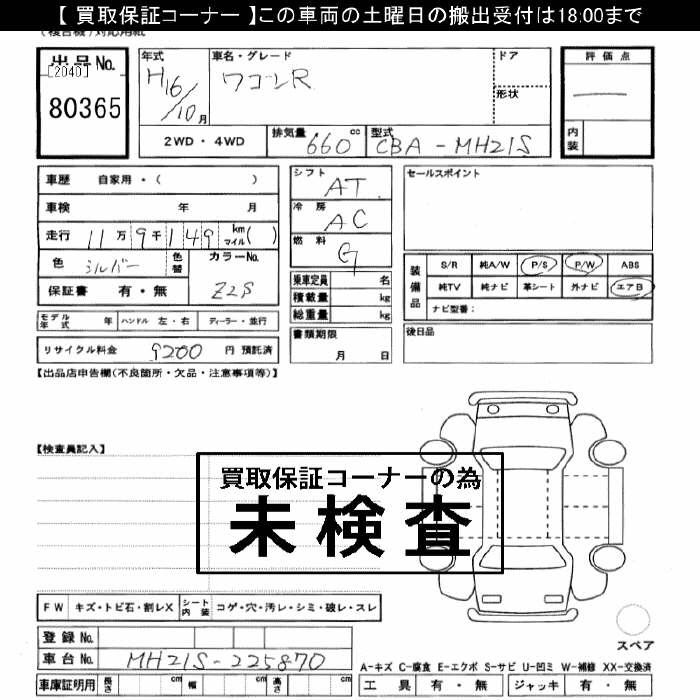 【 買取保証コーナー 】この車両の土曜日の搬出受付は18:00まで
(複合機)対応用紙
出品No.
[2040]
80365
年式
H16/10月
車名・グレード
ワゴンR
ドア
形状
評価点
内装
2WD・4WD
排気量 660 cc
型式 CBA-MH21S
車歴 自家用・( )
車検 年 月
走行 11万9千149 km マイル( )
色 シルバー
色替
カラーNo.
Z2S
保証書 有・無
モデル年式 年 ハンドル 左・右 ディーラー・並行
リサイクル料金 9200 円 預託済
シフト
AT
冷房
AC
燃料
G
乗車定員 名
積載量 kg
総重量 kg
書類期限
月 日
セールスポイント
装備品
S/R 純A/W P/S P/W ABS
純TV 純ナビ 革シート 外ナビ エアB
ナビ型番:
後日品
【出品店申告欄(不良箇所・欠品・注意事項等)】
【検査員記入】
買取保証コーナーの為
未検査
FW キズ・トビ石・割レX シート内装 コゲ・穴・汚レ・シミ・破レ・スレ
登録No.
車台No. MH21S-225870
車庫証明用 長さ cm 幅 cm 高さ cm
スペア
A-キズ C-腐食 E-エクボ S-サビ U-凹ミ W-補修 XX-交換済
工具 有・無 ジャッキ 有・無